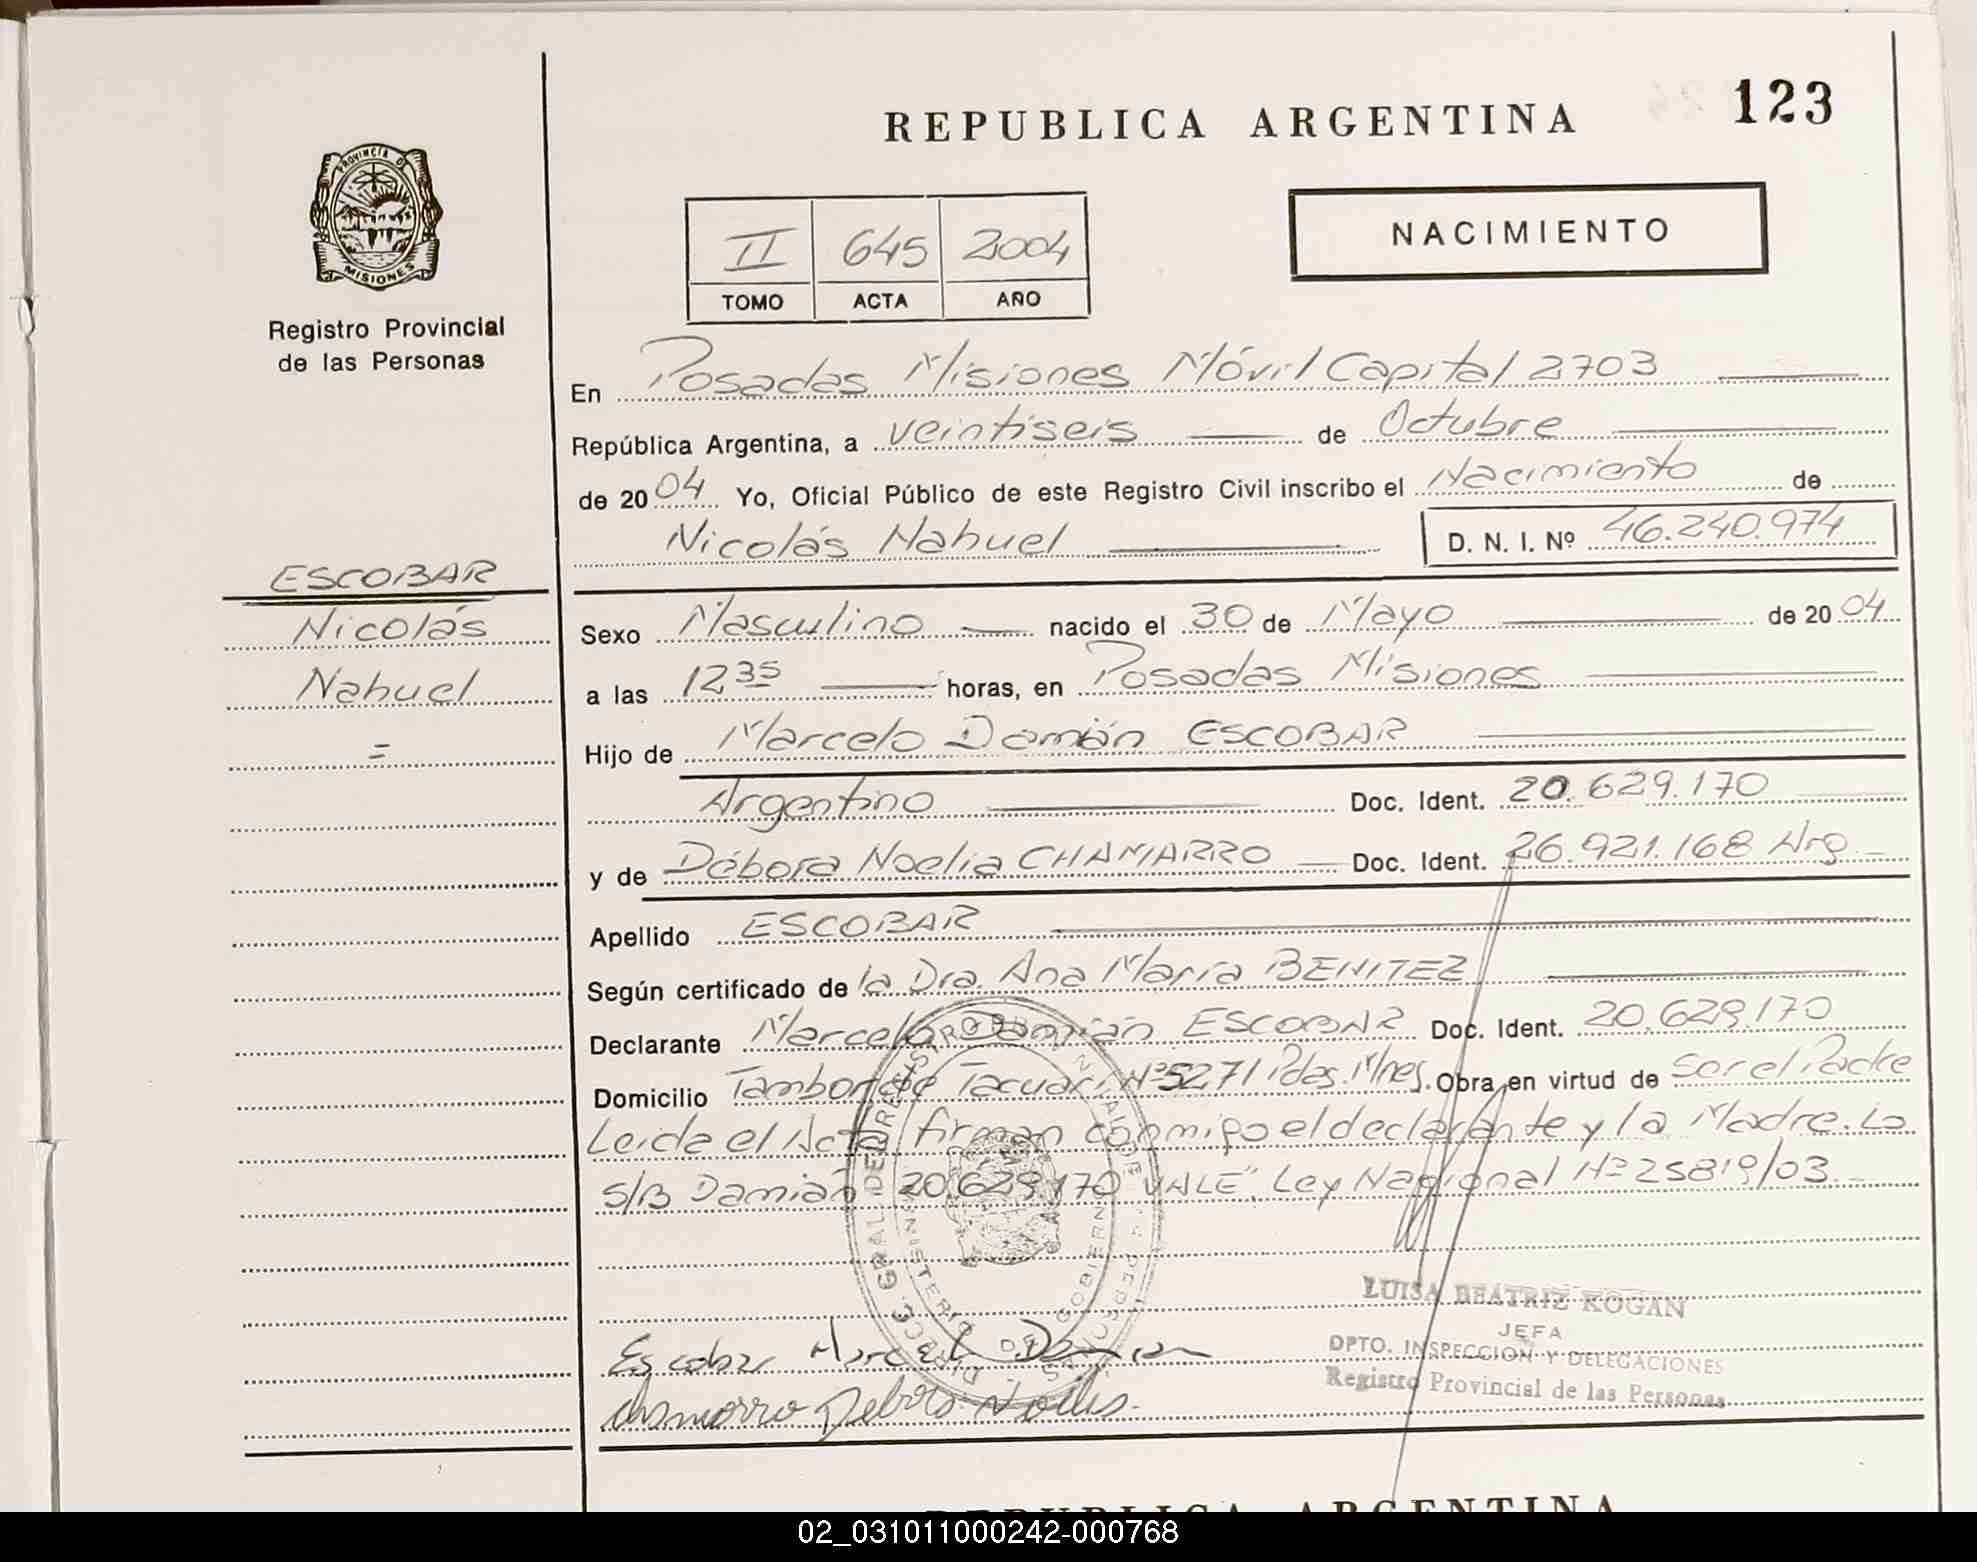 REPUBLICA ARGENTINA
123
PROVINCIA DE
MISIONES
Registro Provincial
de las Personas
II 645 2004
TOMO ACTA AÑO
NACIMIENTO
En Posadas Misiones Móvil Capital 2703
República Argentina, a veintiseis de Octubre
de 2004 Yo, Oficial Público de este Registro Civil inscribo el Nacimiento de
Nicolás Nahuel D. N. I. Nº 46.240.974
ESCOBAR
Nicolás
Nahuel
=
Sexo Masculino nacido el 30 de Mayo de 2004
a las 12 35 horas, en Posadas Misiones
Hijo de Marcelo Damián ESCOBAR
Argentino Doc. Ident. 20.629.170
y de Débora Noelia CHAMARRO Doc. Ident. 26.921.168 Arg
Apellido ESCOBAR
Según certificado de la Dra. Ana María BENITEZ
Declarante Marcelo Damián ESCOBAR Doc. Ident. 20.629.170
Domicilio Tambor de Tacuarí Nº 5271 Pdas. Mnes. Obra en virtud de ser el Padre
Leida el Acta firman conmigo el declarante y la Madre. Lo
S/B Damián 20.629.170 "VALE". Ley Nacional Nº 25819/03.
LUISA BEATRIZ KOGAN
JEFA
DPTO. INSPECCION Y DELEGACIONES
Registro Provincial de las Personas
Escobar Marcelo Damian
Chamorro Debora Noelia
REPUBLICA ARGENTINA
02_031011000242-000768